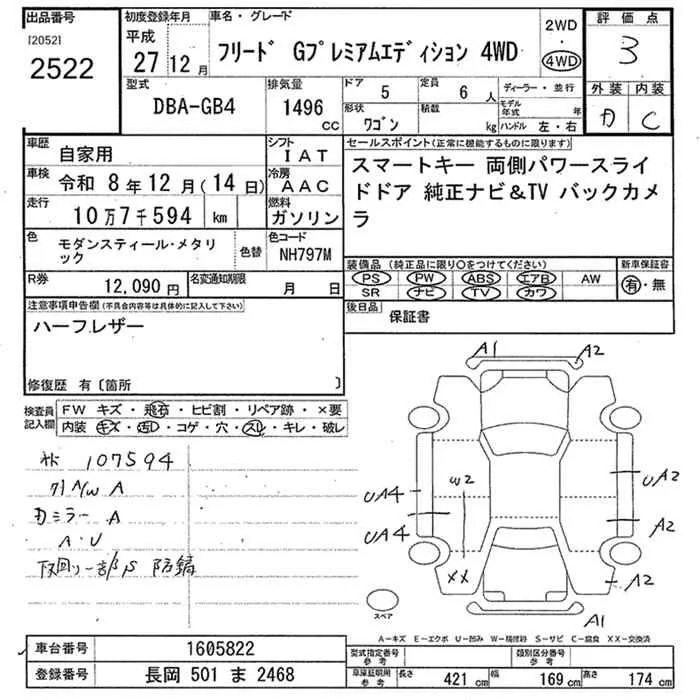 出品番号
[2052]
2522
初度登録年月
平成
27 12 月
車名・グレード
フリード Gプレミアムエディション 4WD
2WD
・
4WD
評価点
3
外装 内装
D C
型式
DBA-GB4
排気量
1496
CC
ドア
5
定員
6 人
形状
ワゴン
積載
kg
ディーラー・並行
モデル年式
年
ハンドル 左・右
車歴
自家用
シフト
IAT
車検
令和 8年 12月 ( 14日 )
冷房
AAC
走行
10万7千594 km
燃料
ガソリン
色
モダンスティール・メタリック
色替
色コード
NH797M
R券
12,090 円
名変通知期限
月 日
セールスポイント(正常に機能するものに限ります)
スマートキー 両側パワースライ
ドドア 純正ナビ&TV バックカメ
ラ
装備品 (純正品に限り○をつけてください)
PS PW ABS エアB AW
SR ナビ TV カワ
新車保証書
有・無
後日品
保証書
注意事項申告欄(不具合内容等は具体的に記入して下さい)
ハーフレザー
修復歴 有〔箇所 〕
検査員
記入欄
FW キズ・飛石・ヒビ割・リペア跡・×要
内装 キズ・汚レ・コゲ・穴・スレ・キレ・破レ
107594
A/W A
ミラー A
A・U
下回り一部S 防錆
A1
A2
UA4
UA4
W2
XX
UA2
A2
A2
A1
スペア
A-キズ E-エクボ U-凹み W-補修跡 S-サビ C-腐食 XX-交換済
車台番号
1605822
登録番号
長岡 501 ま 2468
型式指定番号
参考
類別区分番号
参考
車庫証明用
参考
長さ 421 cm 幅 169 cm 高さ 174 cm